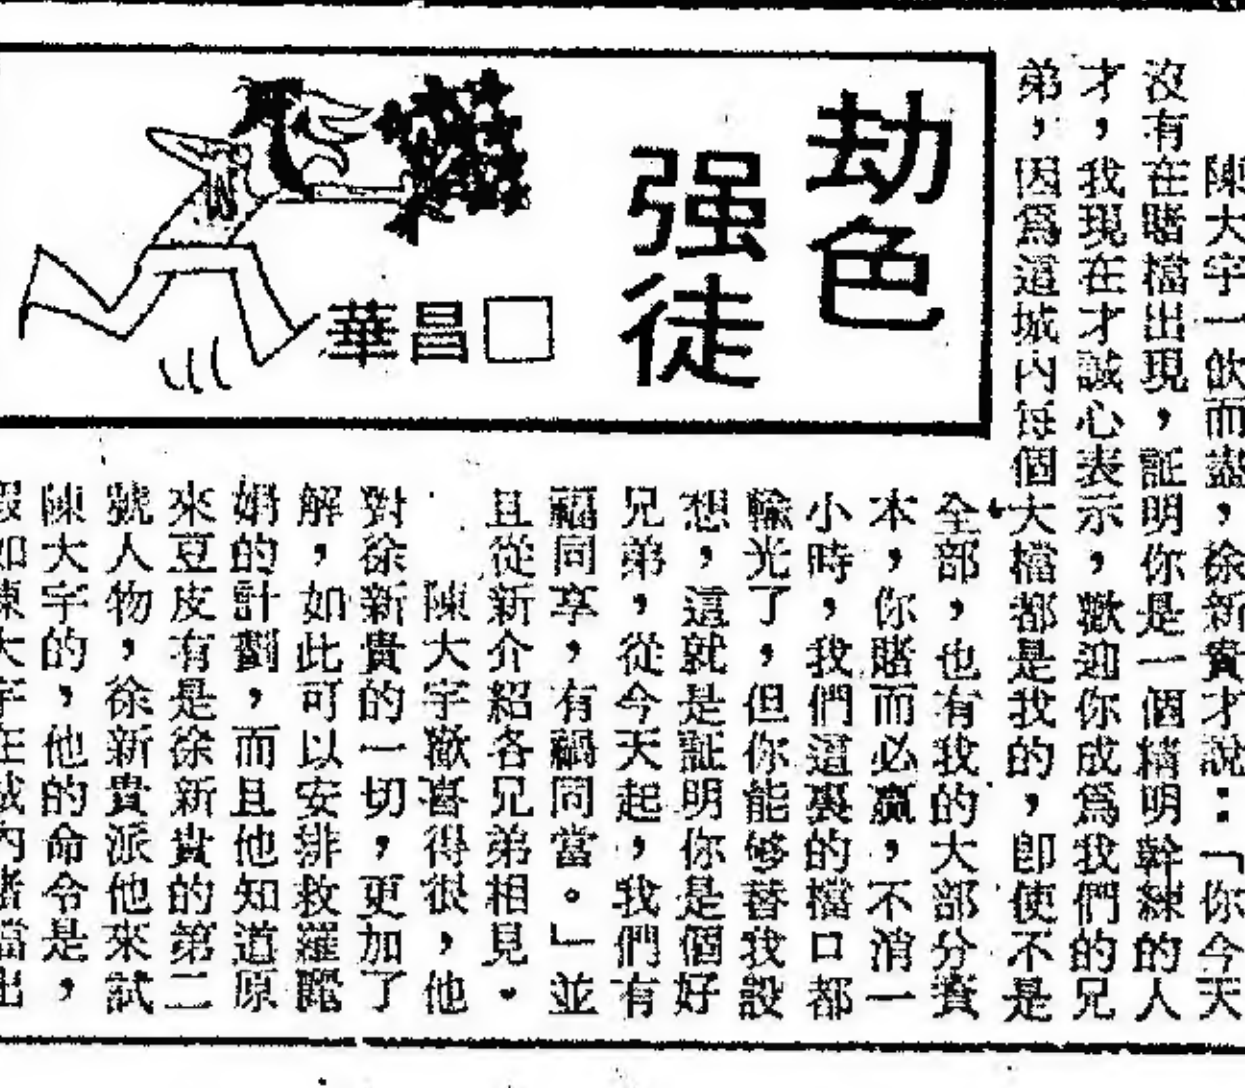 陳大宇一飲而盡，徐新貴才說：「你今天
沒有在賭檔出現，証明你是一個精明幹練的人
才，我現在才誠心表示，歡迎你成爲我們的兄
弟，因爲這城內每個大檔都是我的，即使不是
劫色
强徒
□昌華
全部，也有我的大部分資
本，你賭而必贏，不消一
小時，我們這裏的檔口都
輸光了，但你能够替我設
想，這就是証明你是個好
兄弟，從今天起，我們有
福同享，有禍同當。」並
且從新介紹各兄弟相見。
陳大宇歡喜得很，他
對徐新貴的一切，更加了
解，如此可以安排救羅麗
娟的計劃，而且他知道原
來豆皮有是徐新貴的第二
號人物，徐新貴派他來試
陳大宇的，他的命令是，
假如陳大宇在城內賭檔出